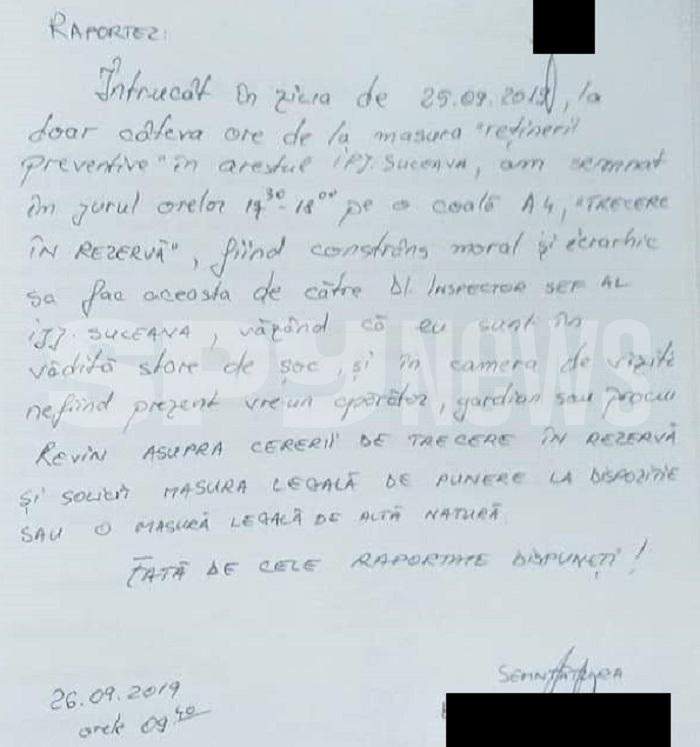 RAPORTEZ:
Întrucât în ziua de 25.09.2019, la
doar câteva ore de la masura "reținerii
preventive" în arestul IPJ. SUCEAVA, am semnat
în jurul orelor 17³⁰-18⁰⁰ pe o coală A4, "TRECERE
ÎN REZERVĂ", fiind constrâns moral și ierarhic
sa fac aceasta de către Dl. INSPECTOR ȘEF AL
IPJ. SUCEAVA, văzând că eu sunt în
vădită stare de șoc, și în camera de vizite
nefiind prezent vreun apărător, gardian sau procu
REVIN ASUPRA CERERII DE TRECERE ÎN REZERVĂ
ȘI SOLICIT MASURA LEGALĂ DE PUNERE LA DISPOZIȚIE
SAU O MASURĂ LEGALĂ DE ALTĂ NATURĂ.
FATĂ DE CELE RAPORTATE DISPUNEȚI!
SEMNĂTURA
26.09.2019
orele 09⁴⁰
SPYNEWS